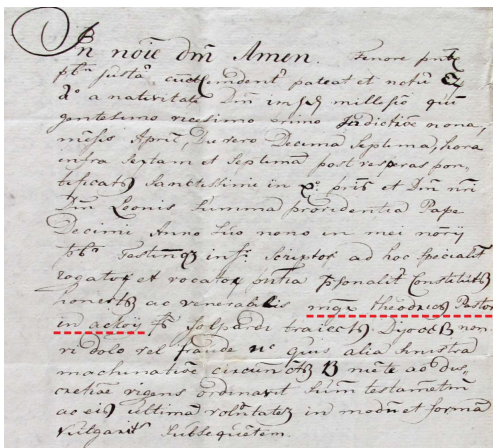 In nõie dm̃ Amen. Tenore pñtis
pbn Justa cuct endent pateat et notũ
dº a nativitate Dm̃ millesiõ quin
gentesimo vicesimo primo Indictiõe nona,
mẽsis Aprĩ, Die vero Decima Septema, hora
infra Sextam et Septemã post vesperas pon-
tificatꝫ Sanctissimi in xp̃o pñs et Dm̃ nr̃i
Dm̃ Leonis divina providentia Pape
Decimi Anno suo nono in mei notĩj
pbñ Testiũqꝫ insc̃ Scriptoꝝ ad hoc specialit̃
rogatoꝝ et vocatoꝝ pñtia psonalit̃ Constitutꝫ
honestꝫ ac venerabilis mgr̃ theodricꝫ Pastor
in achoij Traiectꝫ Diocꝫ non
vi dolo vel fraude nc̃ quis alia sinistra
machinatiõe circuñctꝫ mẽte ac dis-
cretiõe vigens ordinavit suum testamentm̃
ac ei ultimã volũtatẽ in modũ et formã
Vulgarit̃ Subsequẽtem.